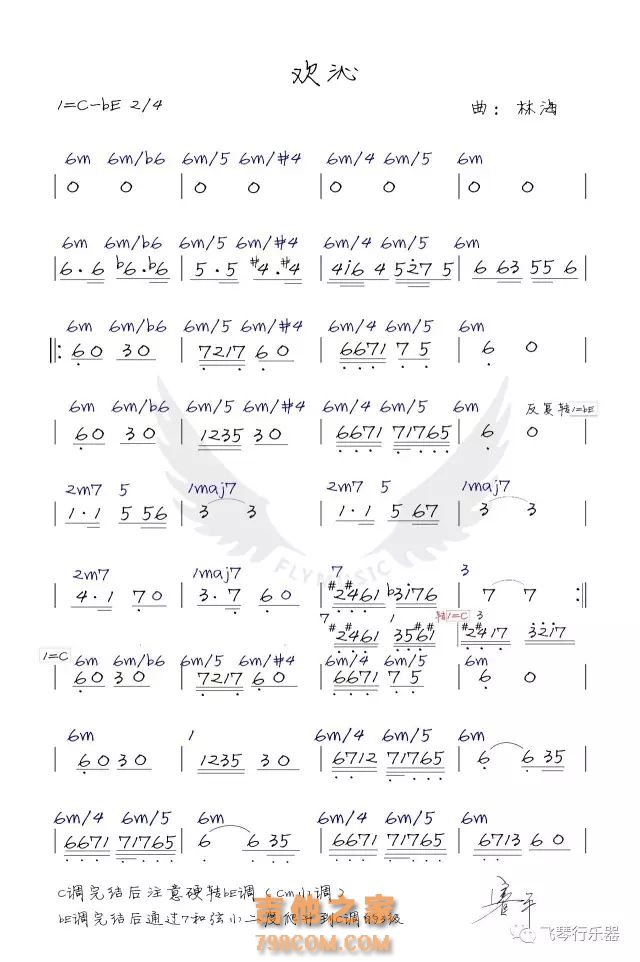 欢沁
1=C-bE 2/4 曲：林海
6m 6m/b6 6m/5 6m/#4 6m/4 6m/5 6m
| 0 0 | 0 0 | 0 0 | 0 0 |
6m 6m/b6 6m/5 6m/#4 6m/4 6m/5 6m
| 6·6 b6·b6 | 5·5 #4·#4 | 4i6 4 527 5 | 6 63 55 6 |
6m 6m/b6 6m/5 6m/#4 6m/4 6m/5 6m
||: 60 30 | 7217 60 | 6671 75 | 6 0 |
6m 6m/b6 6m/5 6m/#4 6m/4 6m/5 6m 反复转1=bE
| 60 30 | 1235 30 | 6671 71765 | 6 0 |
2m7 5 1maj7 2m7 5 1maj7
| 1·1 5 56 | 3 3 | 1·1 5 67 | 3 3 |
FLYMUSIC
2m7 1maj7 7 3
| 4·1 70 | 3·7 60 | #2461 b3176 | 7 7 :||
7 转1=C 3
#2461 3561 | #2#417 3217
1=C 6m 6m/b6 6m/5 6m/#4 6m/4 6m/5 6m
| 60 30 | 7217 60 | 6671 75 | 6 0 |
6m 1 6m/4 6m/5 6m
| 6030 | 1235 30 | 6712 71765 | 6 6 35 |
6m/4 6m/5 6m 6m/4 6m/5 6m
| 6671 71765 | 6 6 35 | 6671 71765 | 6713 60 |
C调完结后注意硬转bE调（Cm小调）
bE调完结后通过7和弦小二度爬升到C调的3级
吉他之家
798COM.COM
飞琴行乐器